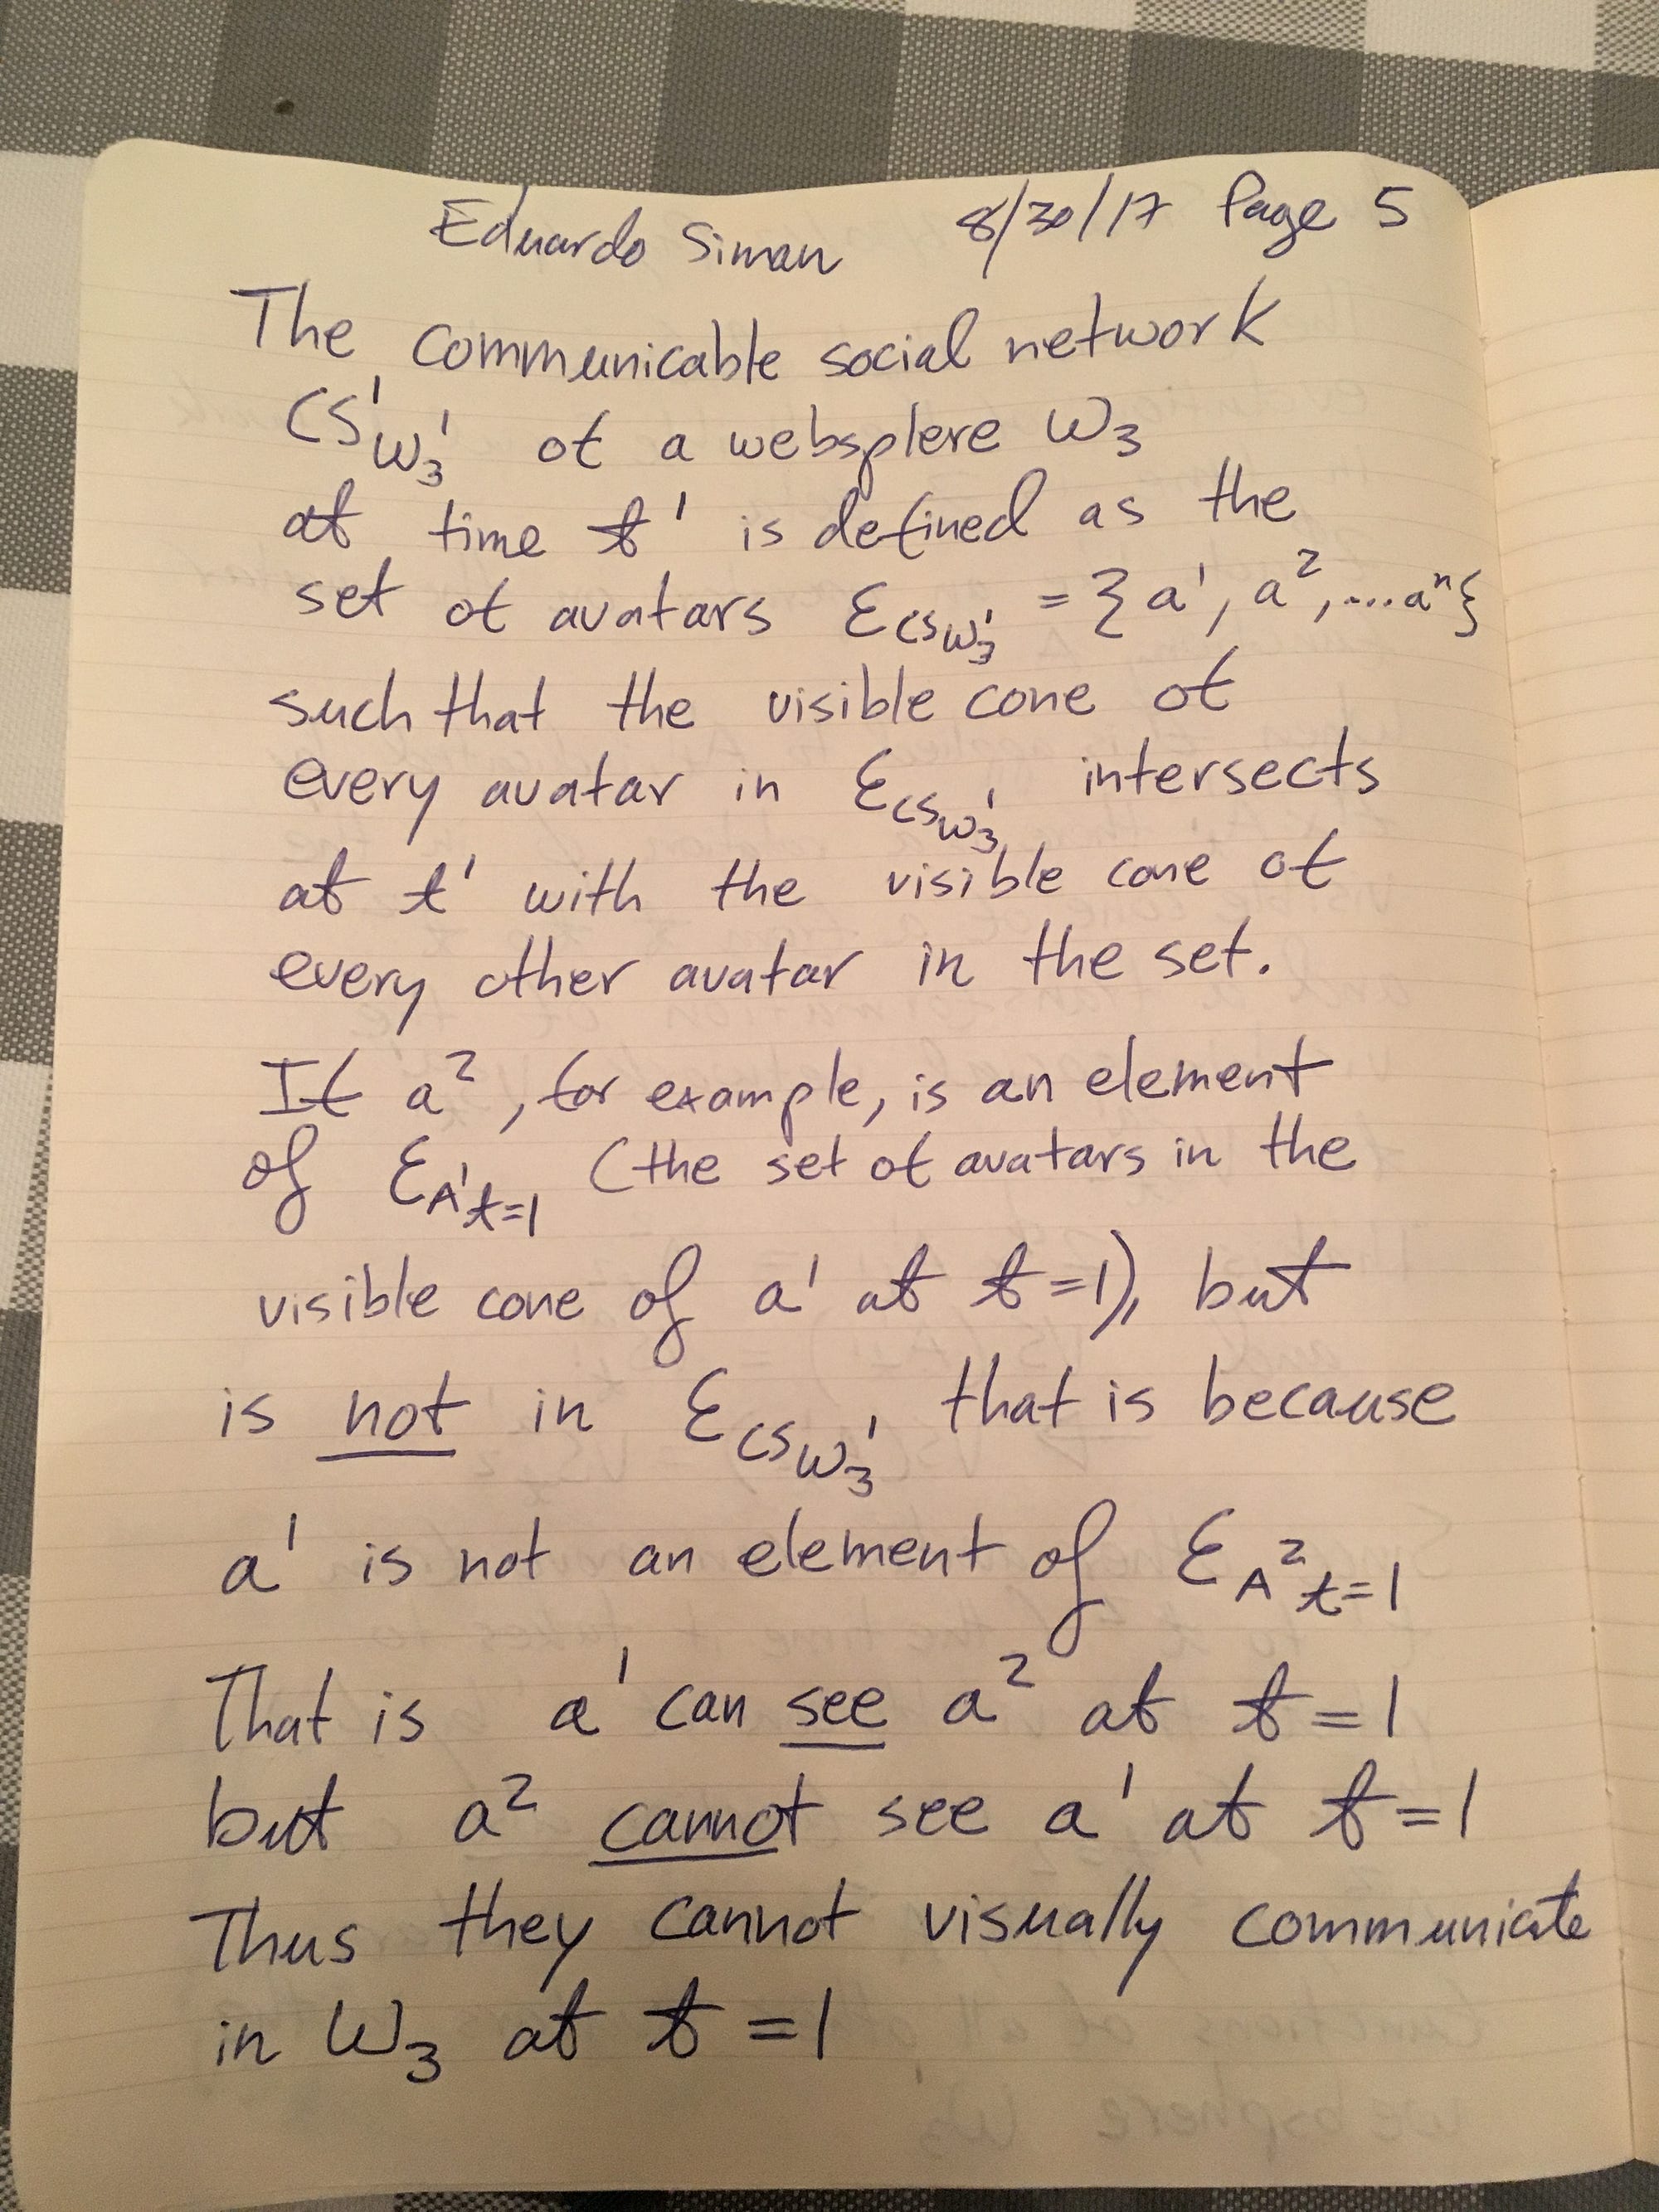 Eduardo Siman 8/30/17 Page 5
The communicable social network
CS¹W₃¹ of a websplere W₃
at time t¹ is defined as the
set of avatars ƐCSW₃¹ = {a¹, a²,....aⁿ}
such that the visible cone of
every avatar in ƐCSW₃¹ intersects
at t¹ with the visible cone of
every other avatar in the set.
If a², for example, is an element
of ƐA¹t=1 (the set of avatars in the
visible cone of a¹ at t=1), but
is not in ƐCSW₃¹ that is because
a¹ is not an element of ƐA²t=1
That is a¹ can see a² at t=1
but a² cannot see a¹ at t=1
Thus they cannot visually communicate
in W₃ at t=1